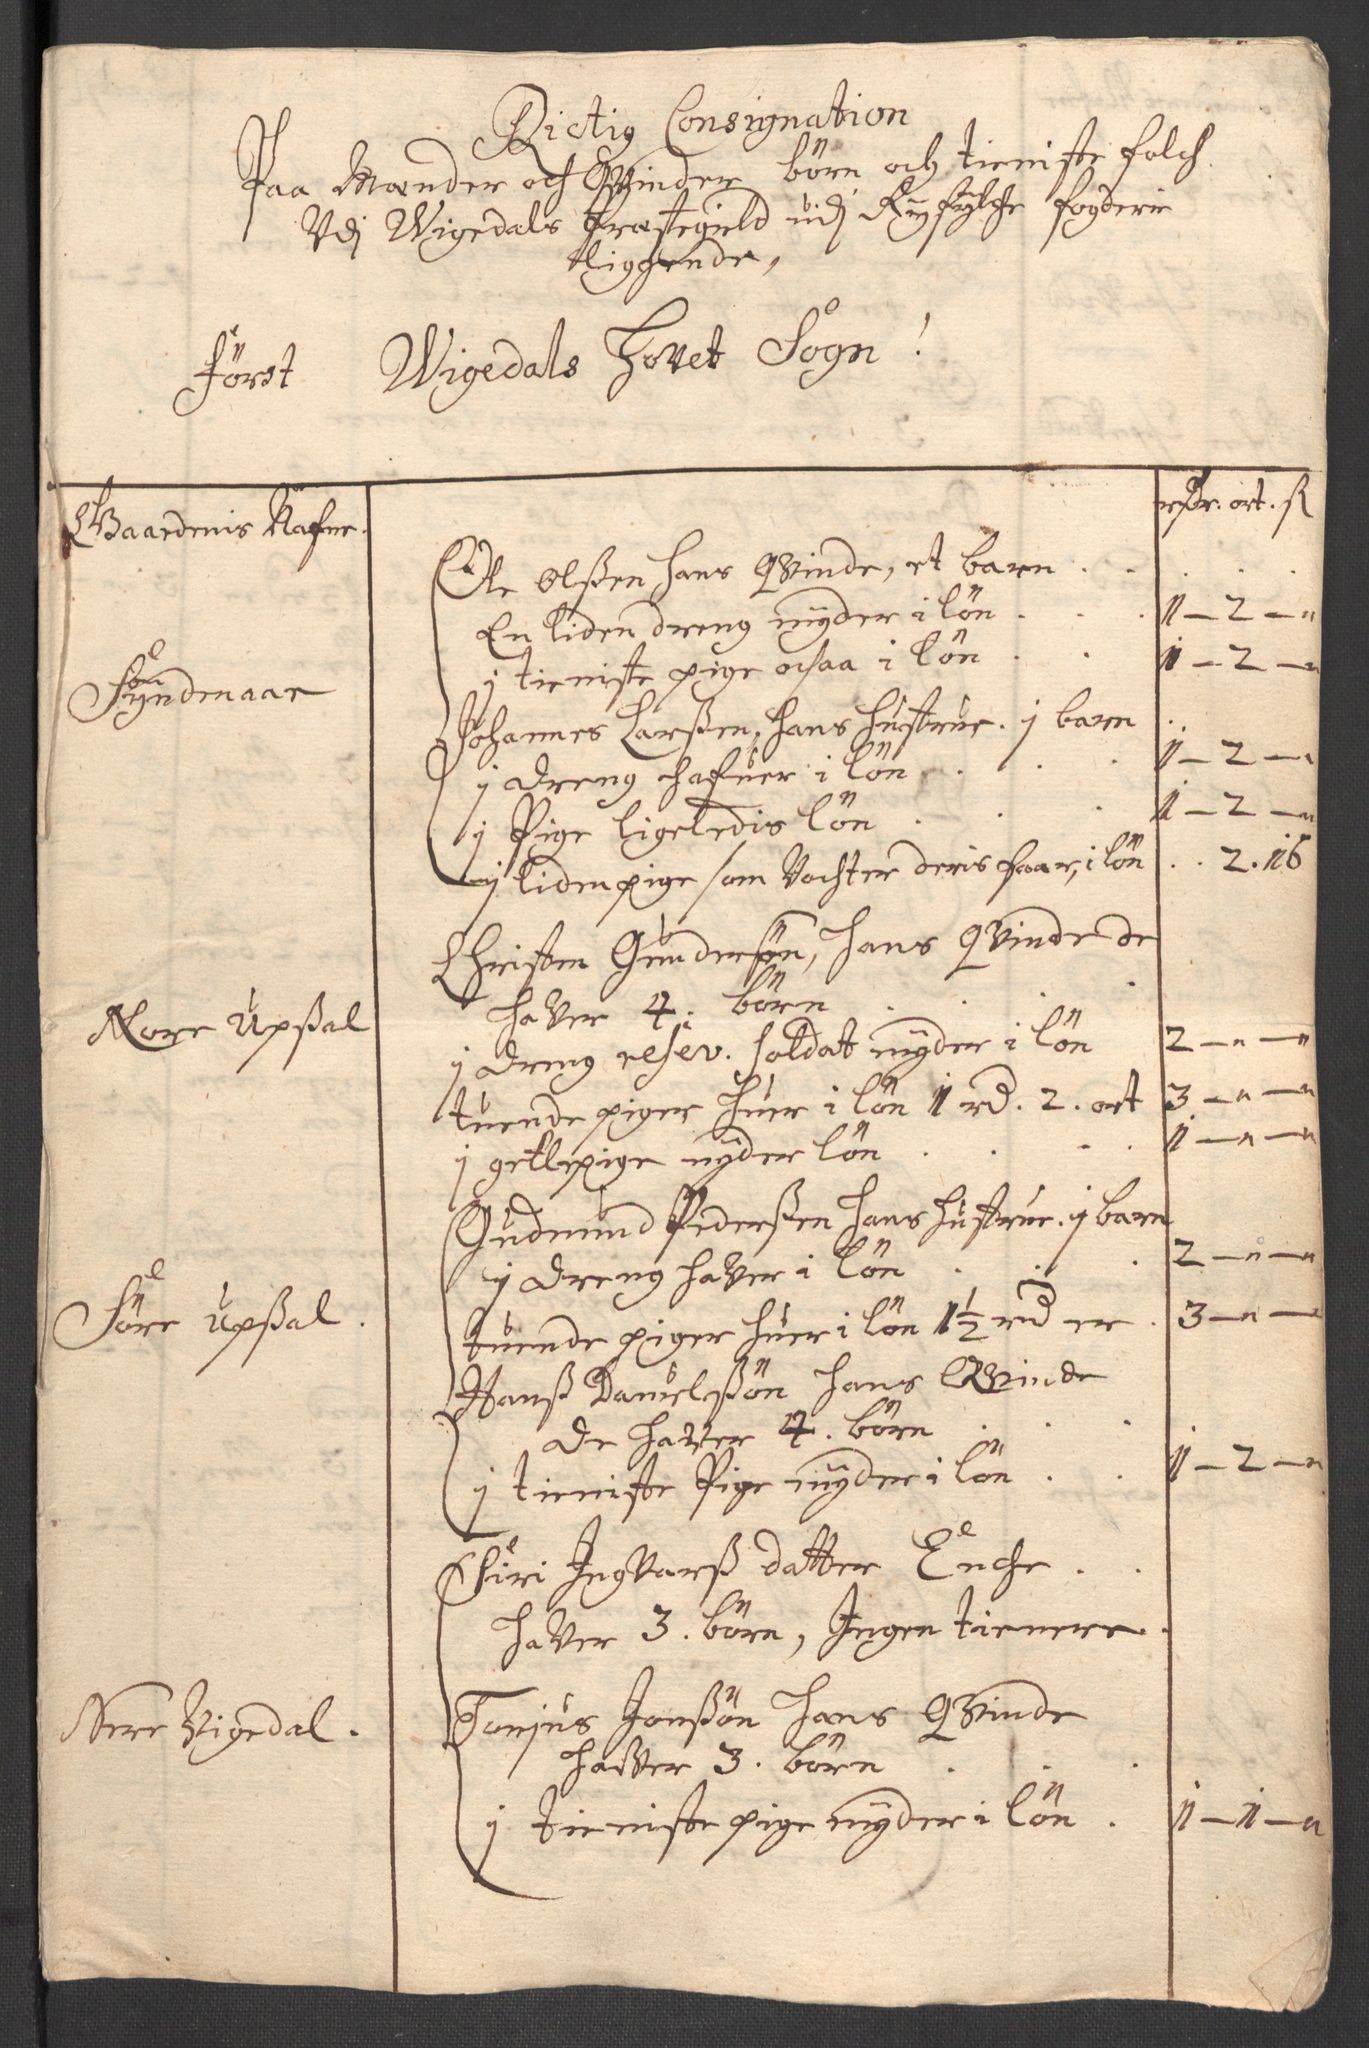 Rictig Consignation
Paa Mænder och Qvinder börn och tieniste folch
Vdj Wigedals Præstegield udj Ryfylche fogderie
liggende,
Först Wigedals Hovet Sogn!
Gaardenis Nafne. rdr. ort. ß
Ole Olßen hans Qvinde, et barn . .
En liden dreng nyder i lön . . . 1 – 2 – "
Syndenaar
j tieniste pige ochsaa i lön . . 1 – 2 – "
Johannes Larßen, hans hustrue. j barn .
j dreng hafuer i lön . . . 1 – 2 – "
j Pige ligeledis lön . . . 1 – 2 – "
j liden pige som Vochter deris faar, i lön . . 2. 16
Christen Gundersön, hans Qvinde de
Nore Upßal
haver 4. börn . . .
j dreng reserv. soldat nyder i lön 2 – " – "
tuende piger huer i lön 1 rd. 2. ort 3 – " – "
j getlepige nyder lön . . . 1 – " – "
Gudmund Pederßen hans hustrue. j barn
Söre Upßal .
j dreng haver i lön . . . 2 – " – "
tuende piger huer i lön 1½ rd er . 3 – " – "
Hanß Danielßön hans Qvinde
de haver 4. börn . . .
j tieniste Pige nyder i lön . . 1 – 2 – "
Siri Ingvarß datter Enche . .
haver 3. börn, Ingen tienere .
Nere Vigedal .
Tonjus Jonßön hans Qvinde
haver 3. börn . . .
j tieniste pige nyder i lön . 1 – 1 – "